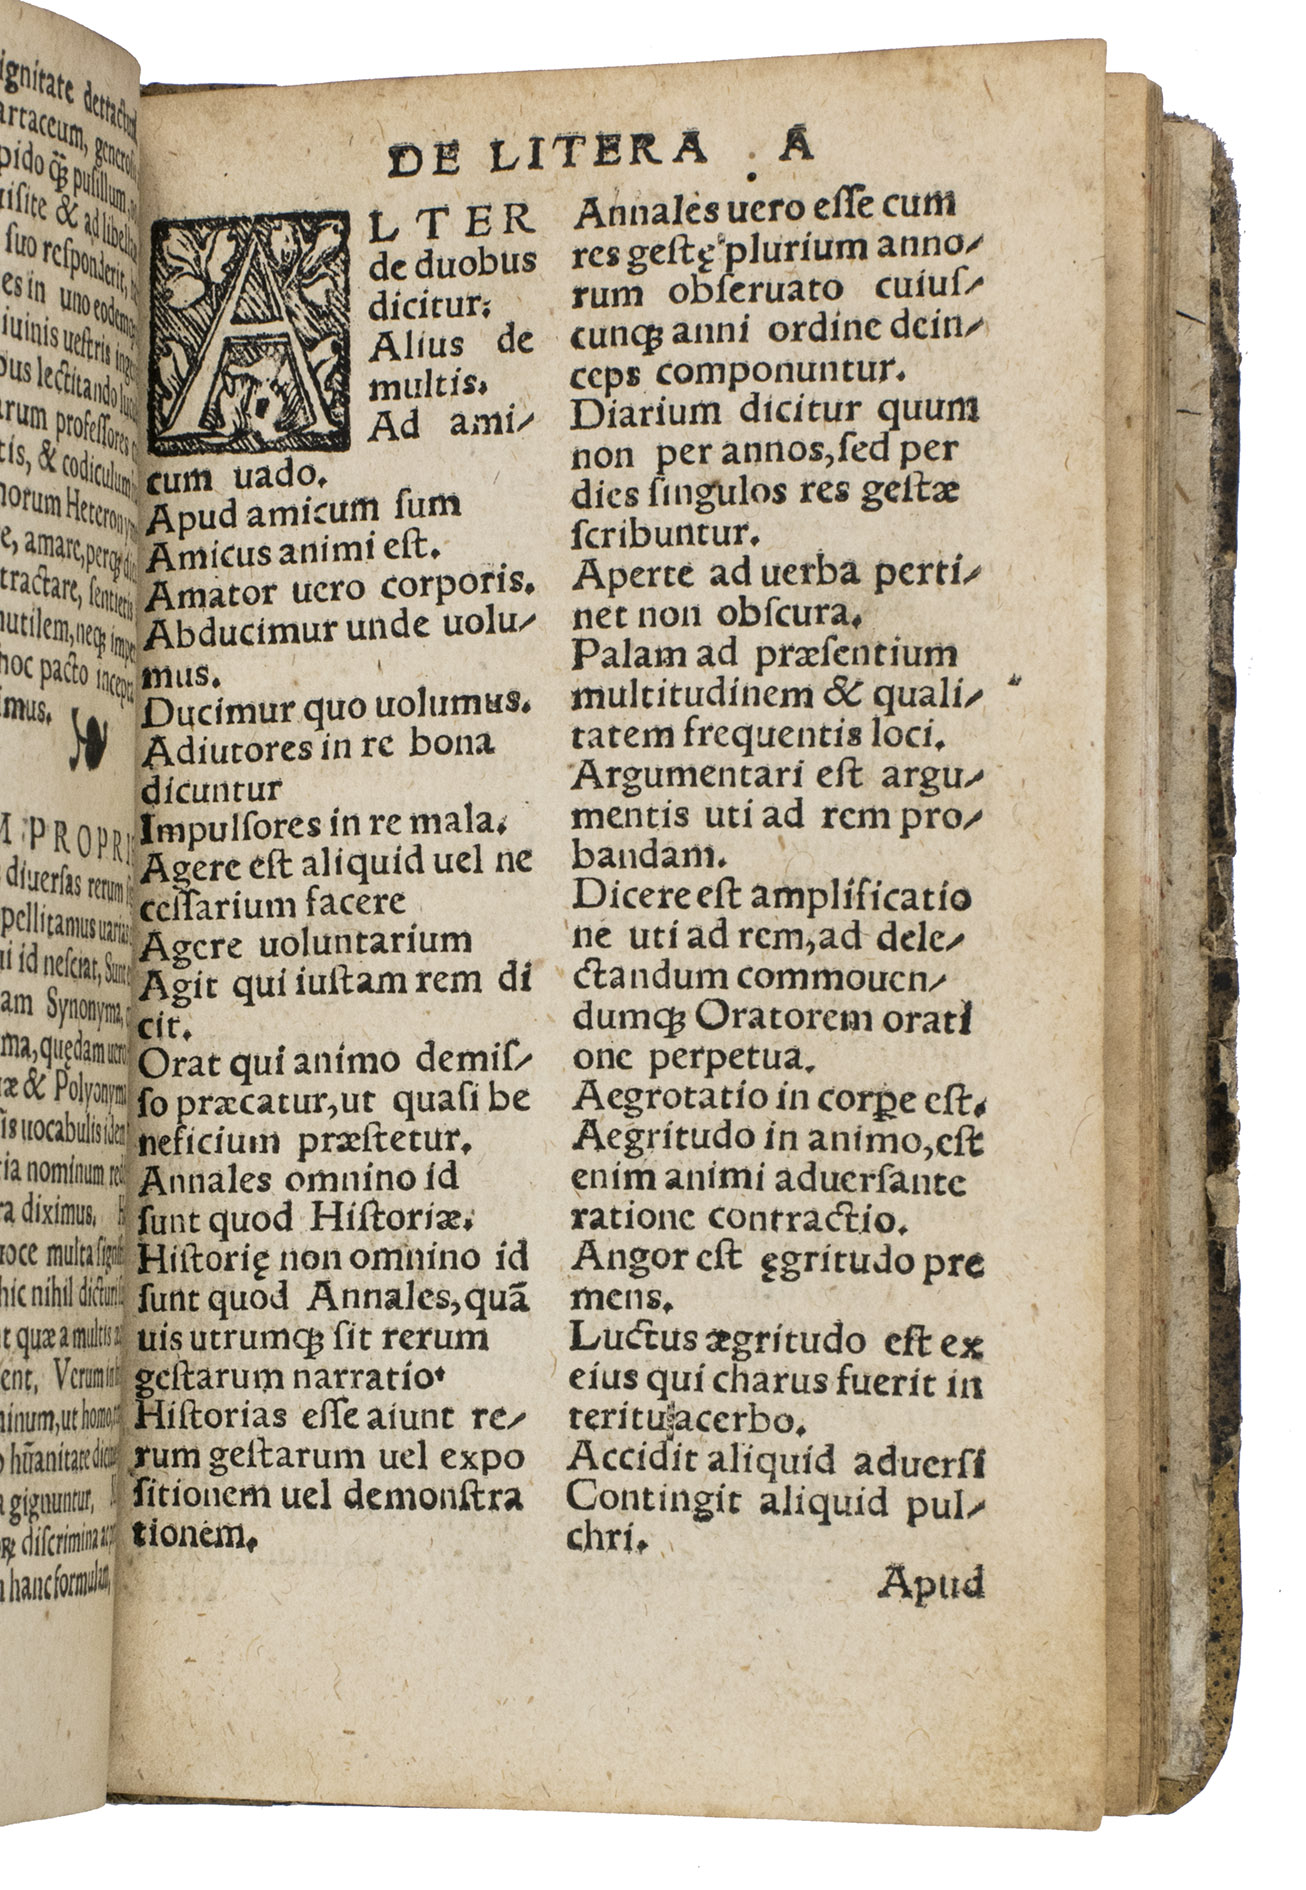 ignitate detractum
artaceum, generosi
pido q̃ꝫ pusillum,
uisite & ad libella
suo responderit,
es in uno eodemqꝫ
iuinis uestris inge
bus lectitando
arum professores
tis, & codiculum
norum Heterony
e, amare, perqꝫ
tractare, sentietis
nutilem, neqꝫ impe
hoc pacto incepta
imus.
M PROPRI
diuersas rerum
pellitamus uarias
ui id nesciat, Sunt
am Synonyma,
ma, quędam uero
æ & Polyonyma
is uocabulis idem
ria nominum
ra diximus.
uoce multa signi
hic nihil dicturi
t quæ a multis
ent, Verum
ninum, ut homo,
hũanitate
gignuntur,
discrimina
hanc formulam,
DE LITERA . A
ALTER
de duobus
dicitur.
Alius de
multis.
Ad ami⸗
cum uado.
Apud amicum ſum
Amicus animi eſt.
Amator uero corporis.
Abducimur unde uolu⸗
mus.
Ducimur quo uolumus.
Adiutores in re bona
dicuntur
Impulſores in re mala.
Agere eſt aliquid uel ne
ceſſarium facere
Agere uoluntarium
Agit qui iuſtam rem di
cit.
Orat qui animo demiſ⸗
ſo præcatur, ut quaſi be
neficium præſtetur.
Annales omnino id
ſunt quod Hiſtoriæ.
Hiſtorię non omnino id
ſunt quod Annales, quã
uis utrumqꝫ ſit rerum
geſtarum narratio.
Hiſtorias eſſe aiunt re⸗
rum geſtarum uel expo
ſitionem uel demonſtra
tionem.
Annales uero eſſe cum
res geſtę plurium anno⸗
rum obſeruato cuiuſ⸗
cunqꝫ anni ordine dein⸗
ceps componuntur.
Diarium dicitur quum
non per annos, ſed per
dies ſingulos res geſtæ
ſcribuntur.
Aperte ad uerba perti⸗
net non obſcura.
Palam ad præſentium
multitudinem & quali⸗
tatem frequentis loci.
Argumentari eſt argu⸗
mentis uti ad rem pro⸗
bandam.
Dicere eſt amplificatio
ne uti ad rem, ad dele⸗
ctandum commouen⸗
dumqꝫ Oratorem orati
one perpetua.
Aegrotatio in corꝑe eſt.
Aegritudo in animo, eſt
enim animi aduerſante
ratione contractio.
Angor eſt ęgritudo pre
mens.
Luctus ægritudo eſt ex
eius qui charus fuerit in
teritu acerbo.
Accidit aliquid aduerſi
Contingit aliquid pul⸗
chri.
Apud